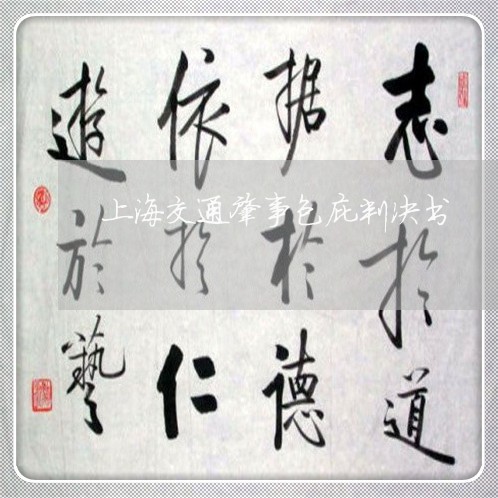 志於道
据於德
依於仁
遊於藝
上海交通肇事包庇判决书